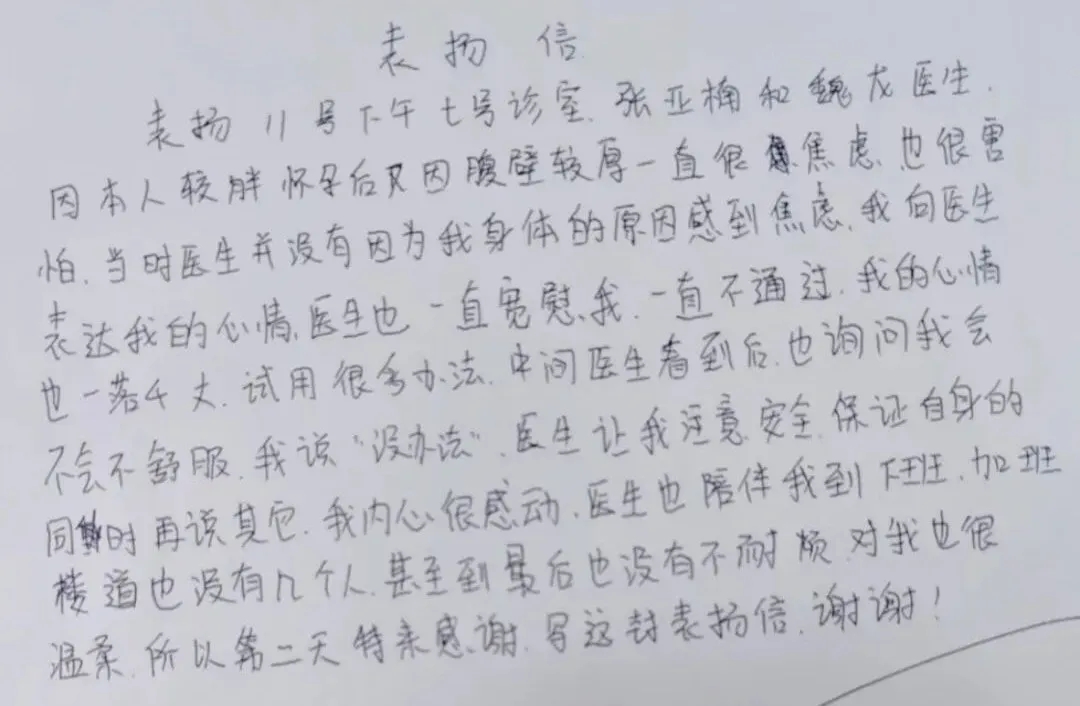 表扬信
表扬11号下午七号诊室.张亚楠和魏龙医生.
因本人较胖怀孕后又因腹壁较厚一直很焦虑.也很害
怕.当时医生并没有因为我身体的原因感到焦虑.我向医生
表达我的心情.医生也一直宽慰我.一直不通过.我的心情
也一落千丈.试用很多办法.中间医生看到后.也询问我会
不会不舒服.我说"没办法".医生让我注意安全.保证自身的
同时再说其它.我内心很感动.医生也陪伴我到下班.加班
楼道也没有几个人.甚至到最后也没有不耐烦.对我也很
温柔.所以第二天特来感谢.写这封表扬信.谢谢!